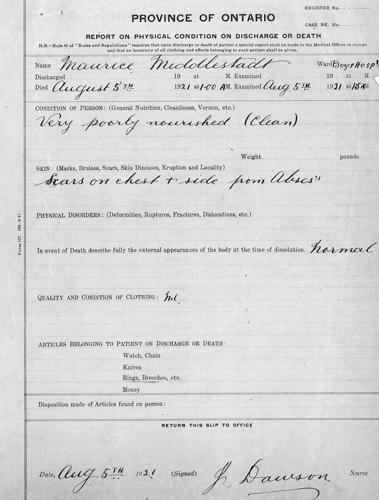 REGISTER NO.
CASE BK. NO.
PROVINCE OF ONTARIO
REPORT ON PHYSICAL CONDITION ON DISCHARGE OR DEATH
N.B.—Rule 61 of "Rules and Regulations" requires that upon discharge or death of patient a special report shall be made to the Medical Officer in charge
and that an inventory of all clothing and effects belonging to such patient shall be given.
Name Maurice Middlestadt Ward Boys Hosp
Discharged 19 at M. Examined 19 at M.
Died August 5TH 1921 at 1:00 A M. Examined Aug 5TH 1921 at M.
CONDITION OF PERSON: (General Nutrition, Cleanliness, Vermin, etc.)
Very poorly nourished (Clean)
Weight pounds
SKIN: (Marks, Bruises, Scars, Skin Diseases, Eruption and Locality)
Scars on chest + side from Abses's
PHYSICAL DISORDERS: (Deformities, Ruptures, Fractures, Dislocations, etc.)
In event of Death describe fully the external appearances of the body at the time of dissolution. Normal
QUALITY AND CONDITION OF CLOTHING:
ARTICLES BELONGING TO PATIENT ON DISCHARGE OR DEATH:
Watch, Chain
Knives
Rings, Brooches, etc.
Money
Disposition made of Articles found on person:
RETURN THIS SLIP TO OFFICE
Date, Aug 5TH 1921 (Signed) Dawson Nurse